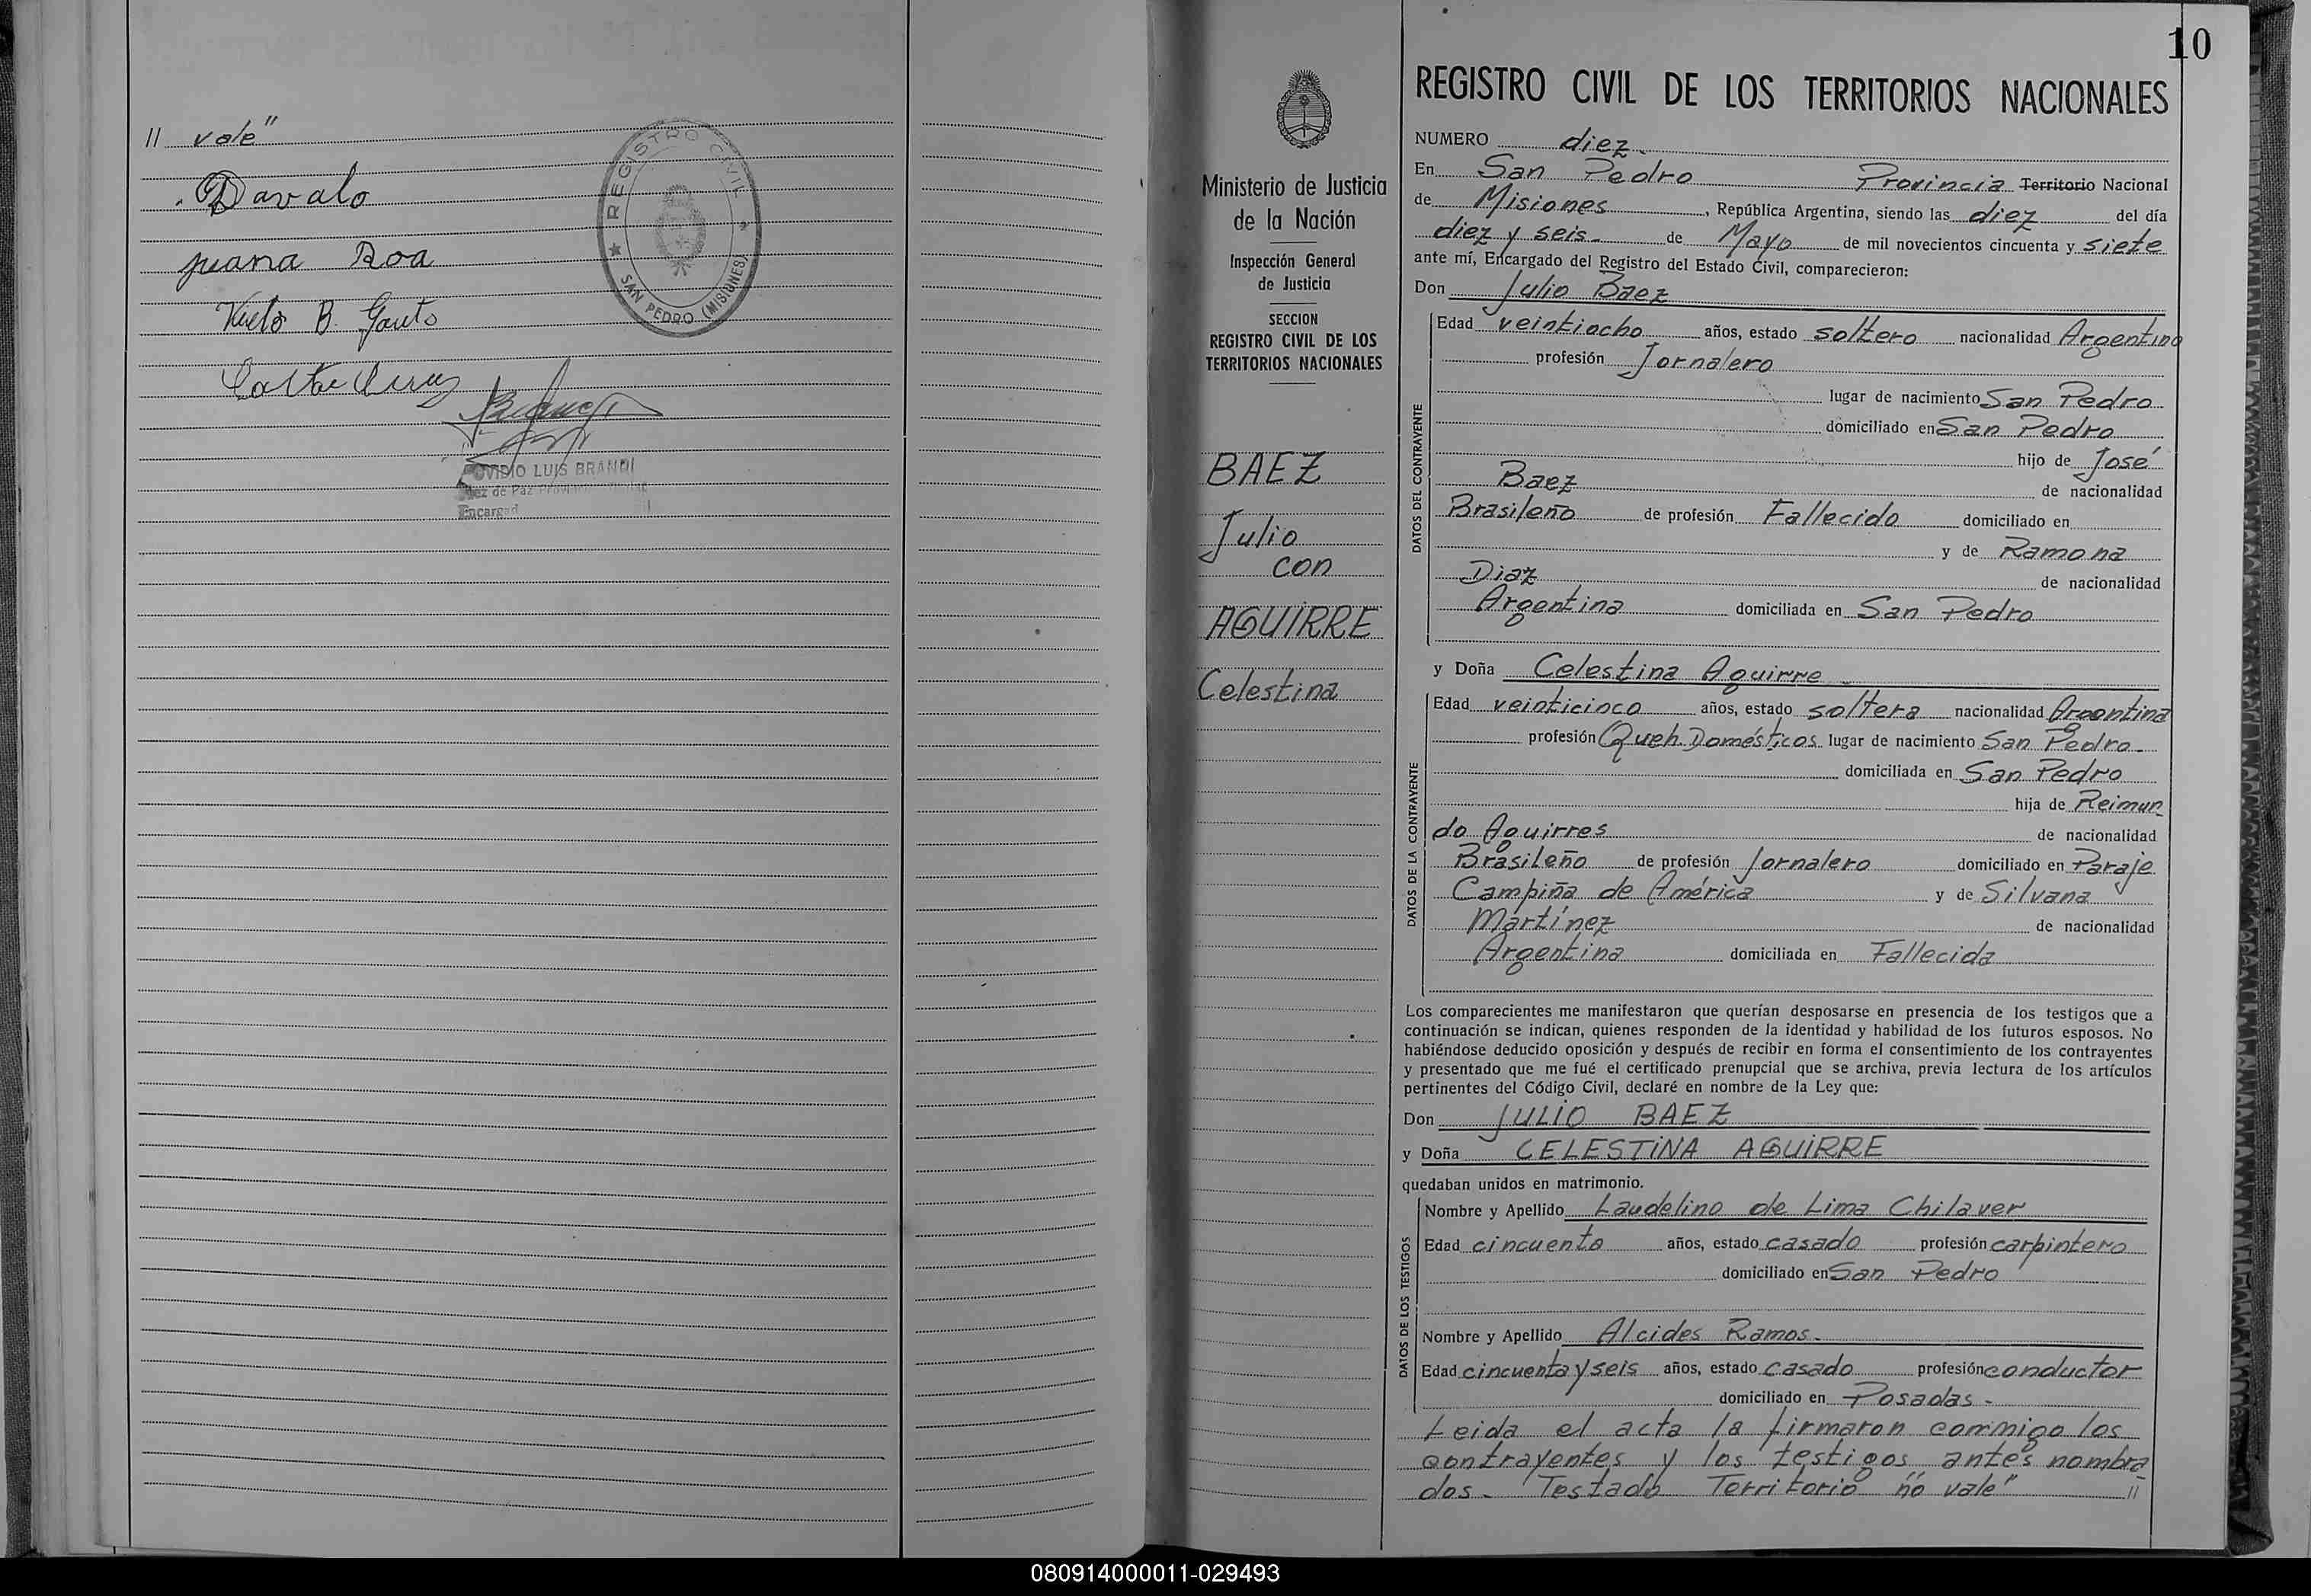 " vale"
Davalo
juana Roa
B. Gauto
★ REGISTRO CIVIL ★
SAN PEDRO (MISIONES)
OVIDIO LUIS BRANDI
Juez de Paz
Encargad
10
Ministerio de Justicia
de la Nación
Inspección General
de Justicia
SECCION
REGISTRO CIVIL DE LOS
TERRITORIOS NACIONALES
BAEZ
Julio
con
AGUIRRE
Celestina
REGISTRO CIVIL DE LOS TERRITORIOS NACIONALES
NUMERO diez.
En San Pedro Provincia Territorio Nacional
de Misiones, República Argentina, siendo las diez del día
diez y seis de Mayo de mil novecientos cincuenta y siete
ante mí, Encargado del Registro del Estado Civil, comparecieron:
Don Julio Baez
DATOS DEL CONTRAYENTE
Edad veintiocho años, estado soltero nacionalidad Argentino
profesión Jornalero
lugar de nacimiento San Pedro
domiciliado en San Pedro
hijo de José
Baez de nacionalidad
Brasileño de profesión Fallecido domiciliado en
y de Ramona
Diaz de nacionalidad
Argentina domiciliada en San Pedro
y Doña Celestina Aguirre.
DATOS DE LA CONTRAYENTE
Edad veinticinco años, estado soltera nacionalidad Argentina
profesión Queh. Domésticos lugar de nacimiento San Pedro.
domiciliada en San Pedro
hija de Reimun
do Aguirres de nacionalidad
Brasileño de profesión Jornalero domiciliado en Paraje
Campiña de América y de Silvana
Martínez de nacionalidad
Argentina domiciliada en Fallecida
Los comparecientes me manifestaron que querían desposarse en presencia de los testigos que a
continuación se indican, quienes responden de la identidad y habilidad de los futuros esposos. No
habiéndose deducido oposición y después de recibir en forma el consentimiento de los contrayentes
y presentado que me fué el certificado prenupcial que se archiva, previa lectura de los artículos
pertinentes del Código Civil, declaré en nombre de la Ley que:
Don JULIO BAEZ
y Doña CELESTINA AGUIRRE
quedaban unidos en matrimonio.
DATOS DE LOS TESTIGOS
Nombre y Apellido Laudelino de Lima Chilaver
Edad cincuenta años, estado casado profesión carpintero
domiciliado en San Pedro
Nombre y Apellido Alcides Ramos.
Edad cincuenta y seis años, estado casado profesión conductor
domiciliado en Posadas.
Leida el acta la firmaron conmigo los
contrayentes y los testigos antes nombra
dos. Testado Territorio "no vale" "
080914000011-029493